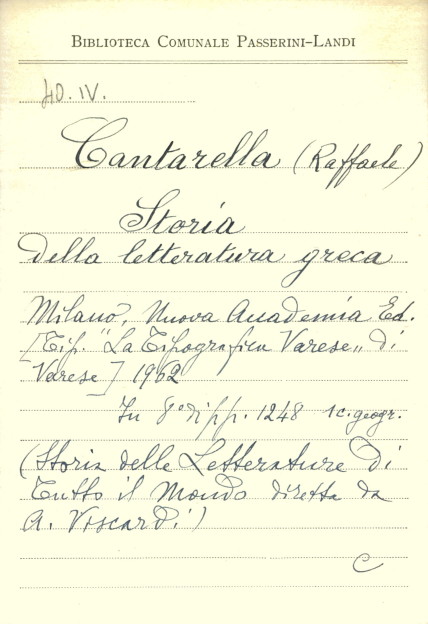 BIBLIOTECA COMUNALE PASSERINI-LANDI
40. IV.
Cantarella (Raffaele)
Storia
della letteratura greca
Milano, Nuova Accademia Ed.
[Tip. "La Tipografica Varese" di
Varese] 1962
In 8° di pp. 1248 1 c. geogr.
(Storia delle Letterature di
Tutto il Mondo diretta da
A. Viscardi)
C